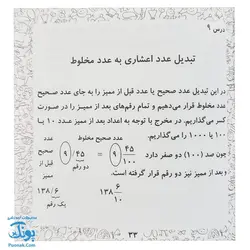 درس ۹
تبدیل عدد اعشاری به عدد مخلوط
در این تبدیل عدد صحیح یا عدد قبل از ممیز را به جای عدد صحیح
عدد مخلوط قرار می‌دهیم و تمام رقم‌های بعد از ممیز را در صورت
کسر می‌گذاریم. در مخرج با توجه به اعداد بعد از ممیز عدد ۱۰ یا
۱۰۰ یا ۱۰۰۰ را می‌گذاریم.
عدد صحیح مخلوط
عدد
صحیح
قبل از
ممیز
۹/۴۵ = ۹ ۴۵/۱۰۰
دو رقم
چون صد (۱۰۰) دو صفر دارد
و بعد از ممیز نیز دو رقم قرار گرفته است.
۱۳۸/۶
یک رقم
۱۳۸ ۶/۱۰
۳۳
محصولات آموزشی
پونک
Poonak.com